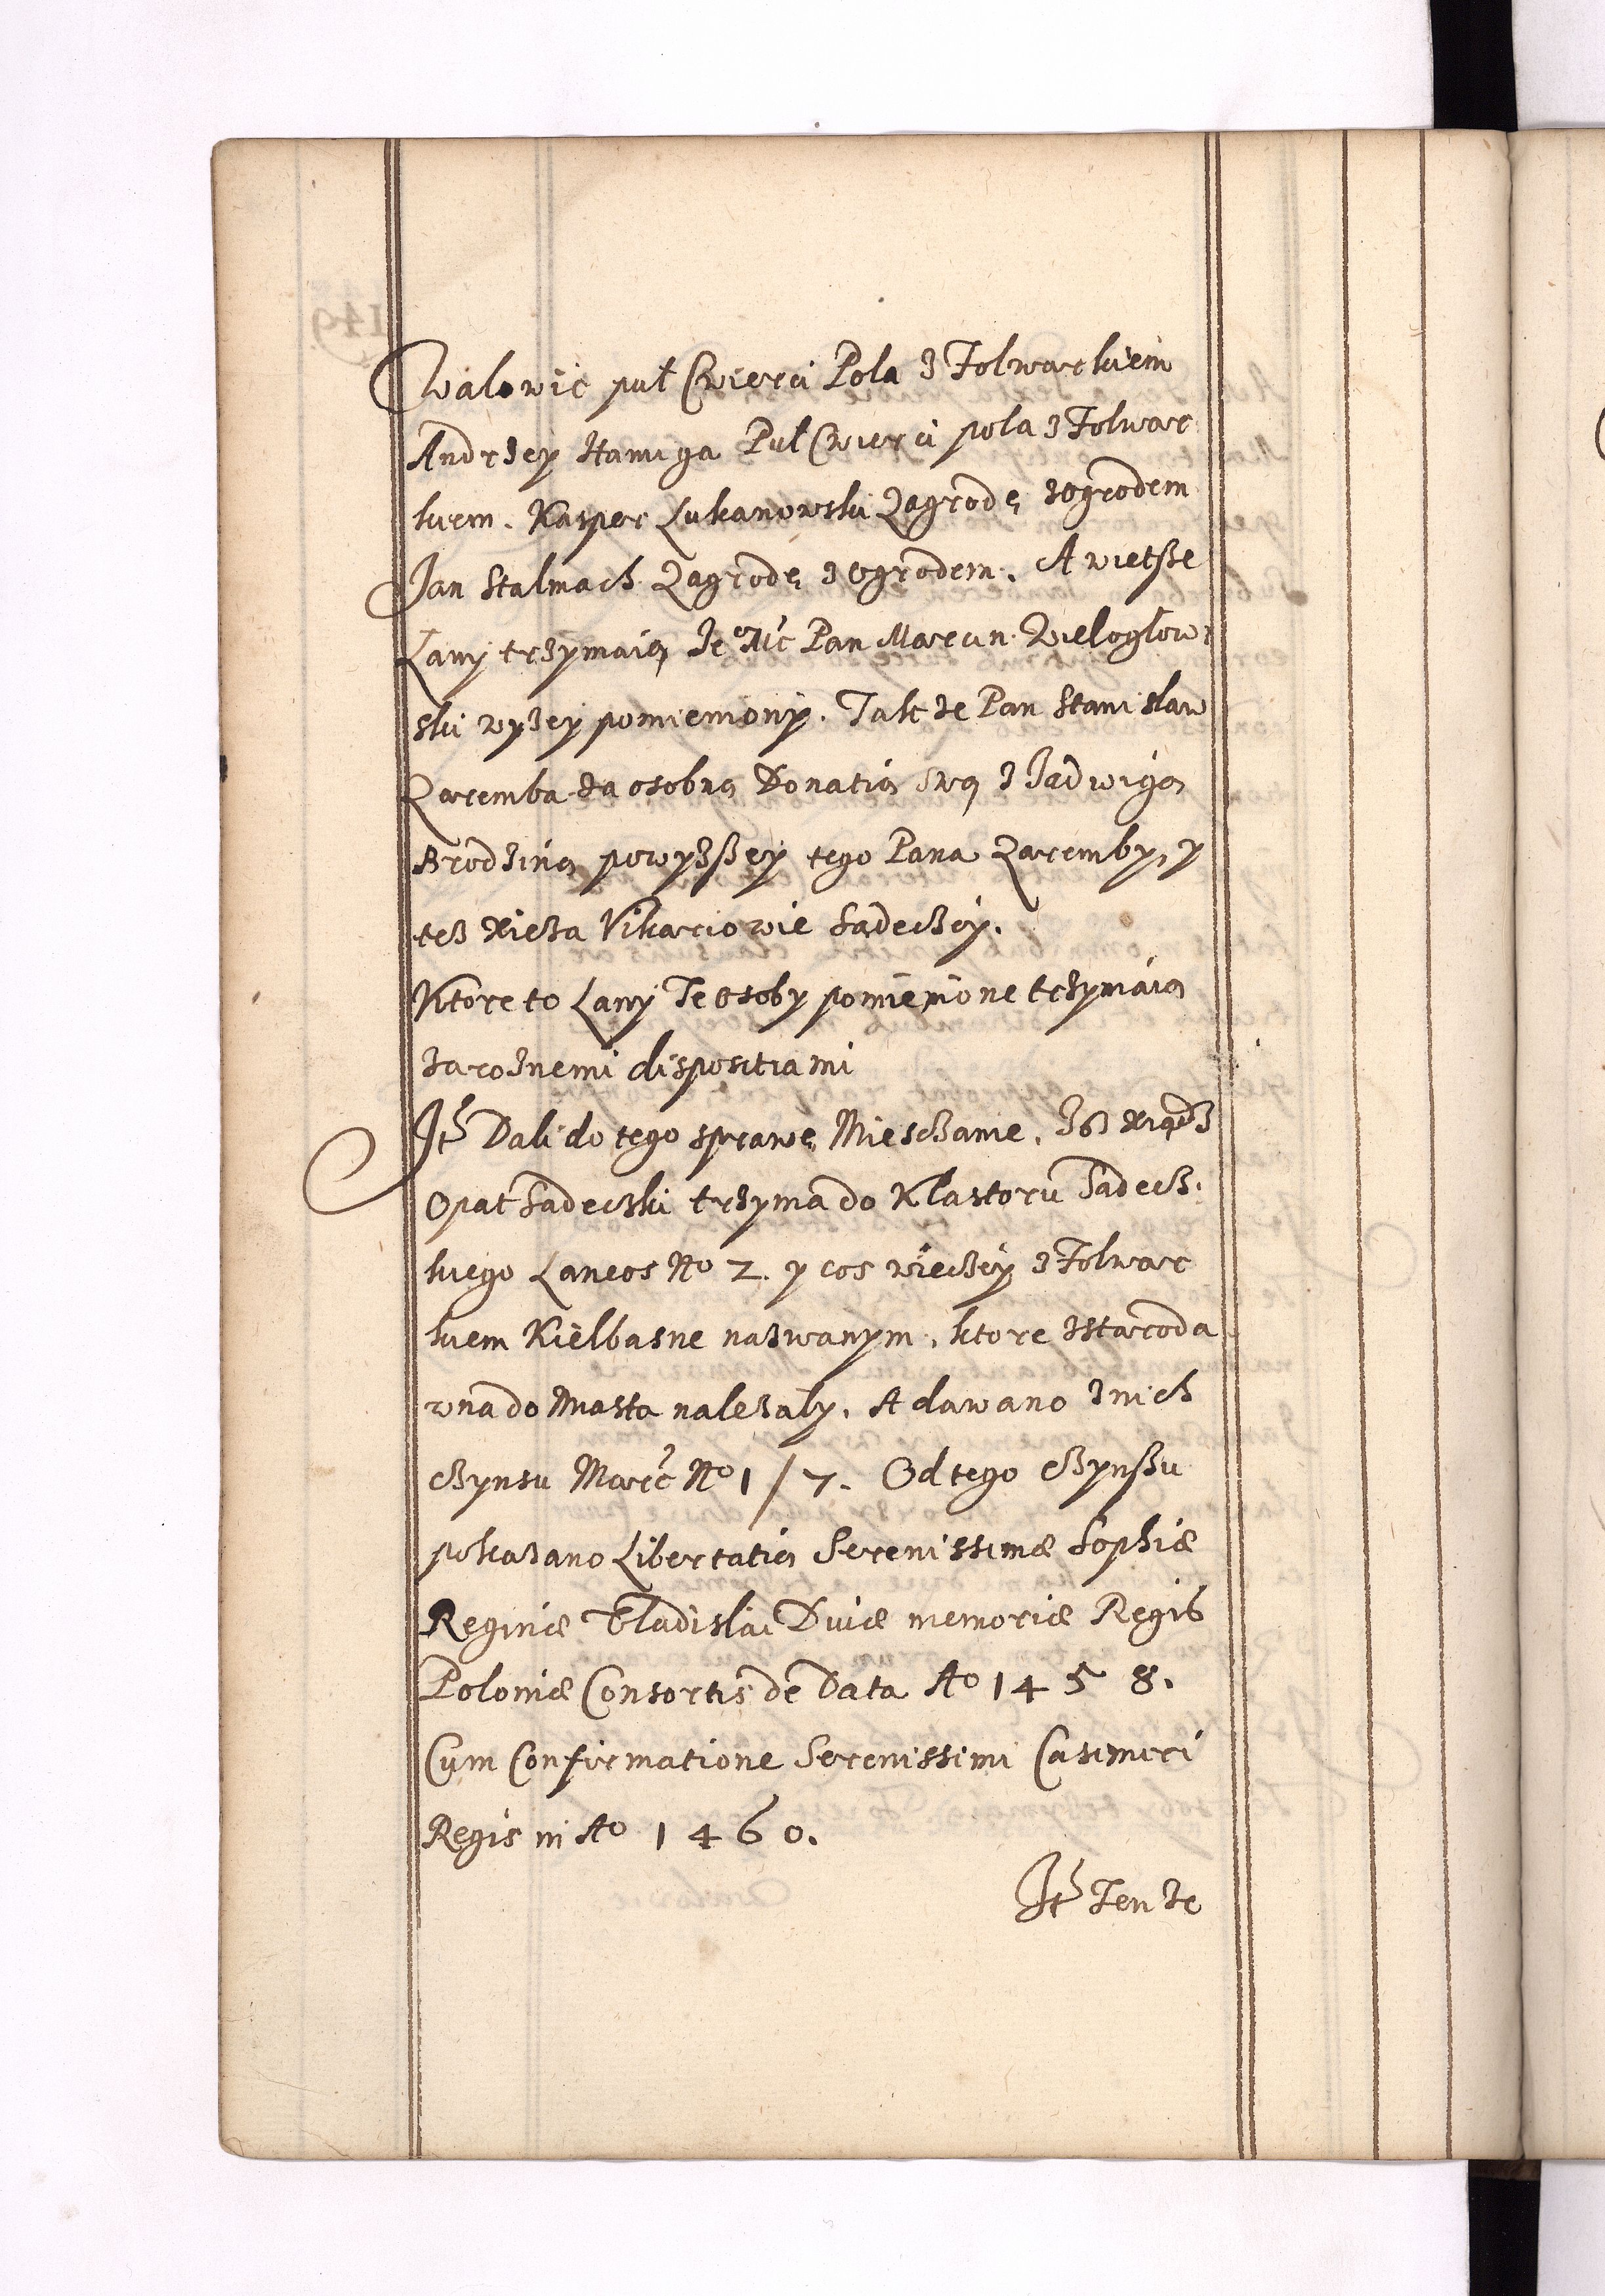 Walowic puł Cwierci Pola z Folwarkiem
Andrzey Hamiga Puł Cwierci pola z Folwar
kiem. Kasper Lukanowski Zagrodę zogrodem
Jan Stalmach Zagrodę z ogrodem. A wietsze
Lany trzymaią Je° Mć Pan Marcin Wielogłow:
ski wyzey pomieniony. Takze Pan Stanislaw
Zaremba za osobną Donatią swą z Jadwigą
Brodziną powyzszey tego Pana Zaremby, y
tez xieza Vikariowie Sądeczcy.
Ktore to Lany Te osoby pomienione trzymaią
zaroznemi dispositiami
Jt Dali do tego sprawę Mieszczanie, Jż xiądz
Opat Sadeczki trzyma do Klastoru Sadecz:
kiego Laneos N° 2. y cos więczey z Folwar
kiem Kiełbasne nazwanym, ktore zstaroda
wna do Miasta nalezaly. A dawano z nich
czynsu Març N° 1/7. Od tego czynszu
pokazano Libertatią Serenissimæ Sophiæ
Reginæ Vladislai Diuæ memoriæ Regis
Poloniæ Consortis de Data A° 1458.
Cum Confirmatione Serenissimi Casimiri
Regis in A° 1460.
Jt Tenze